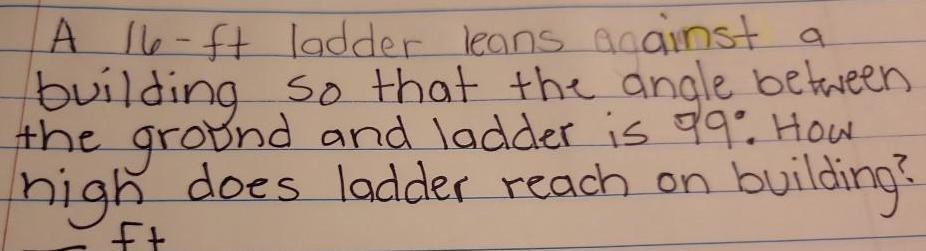 A 16-ft ladder leans against a
building so that the angle between
the ground and ladder is 79°. How
high does ladder reach on building?
_ ft